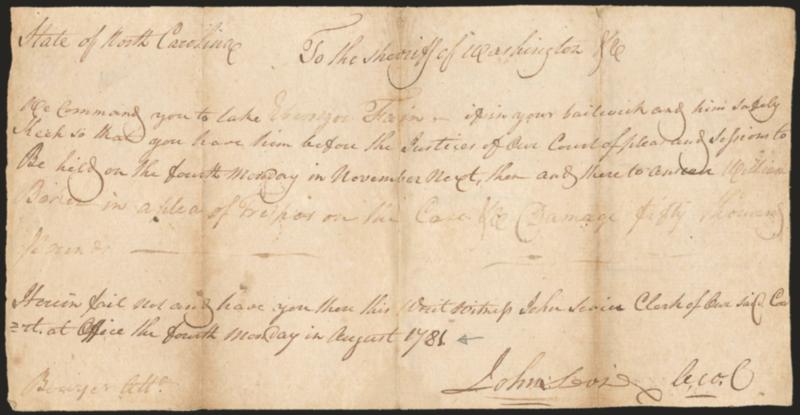 State of North Caroline To the sheriff of Washington &c
We Command you to take Ebenezor Fain if in your bailwick and him safely
Keek so that you have him before the Justices of Our Court of pleas and sessions to
Be held on the fourth Monday in November Next, then and there to answer William
in a plea of Trespas on the Case &c Damage fifty Thousand
Pounds
Herein fail not and have you then this Writ Witness John Sevier Clerk of Our said Cou
=rt. at Office the fourth Monday in August 1781
Bowyer Atto. John Sevier C,co,C